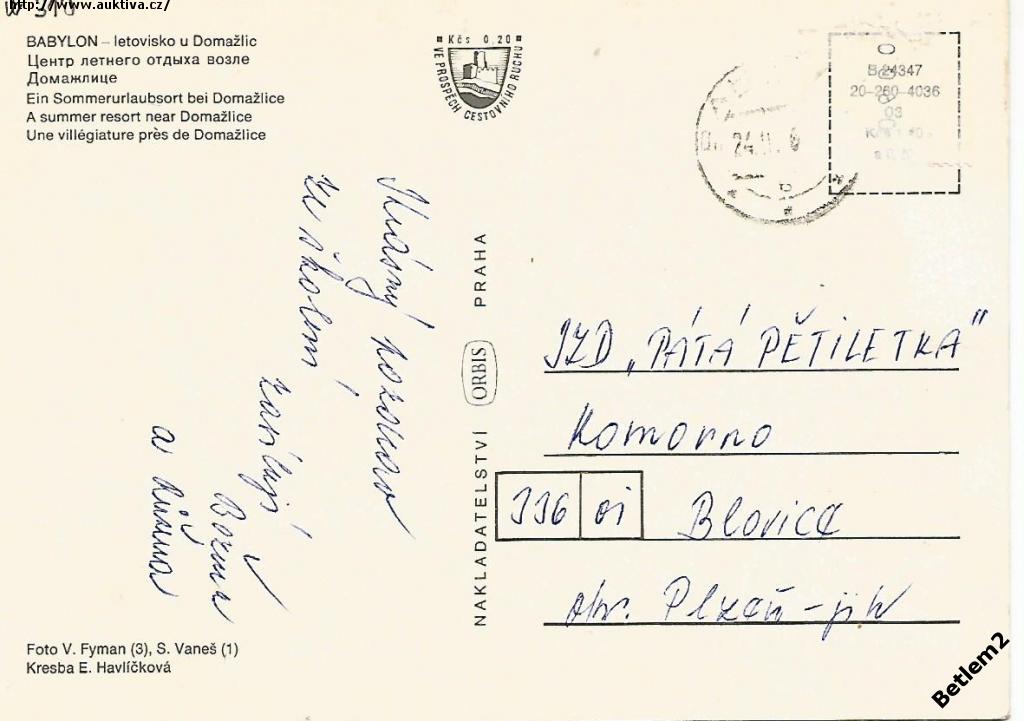 http://www.auktiva.cz/
BABYLON – letovisko u Domažlic
Центр летнего отдыха возле
Домажлице
Ein Sommerurlaubsort bei Domažlice
A summer resort near Domažlice
Une villégiature près de Domažlice
Kčs 0,20
VE PROSPĚCH CESTOVNÍHO RUCHU
B 24347
20-280-4036
03
24.II.
Krásný pozdrav
ze školení
zasílají
Božena
a Růžena
NAKLADATELSTVÍ ORBIS PRAHA
JZD „PÁTÁ PĚTILETKA"
Komorno
336 01 Blovice
okr. Plzeň-jih
Foto V. Fyman (3), S. Vaneš (1)
Kresba E. Havlíčková
Betlem2